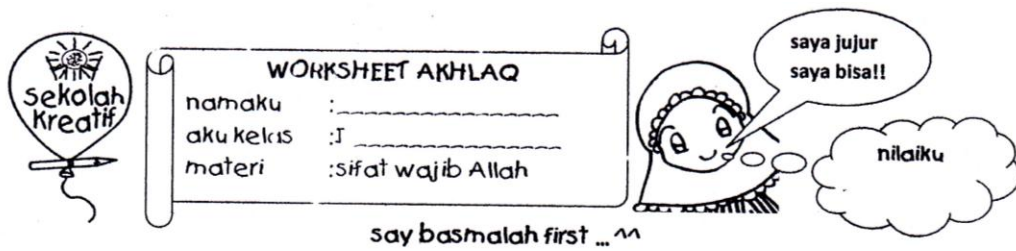 sekolah
kreatif
WORKSHEET AKHLAQ
namaku :____________________
aku kelas :I ____________________
materi :sifat wajib Allah
saya jujur
saya bisa!!
nilaiku
say basmalah first ... ^^